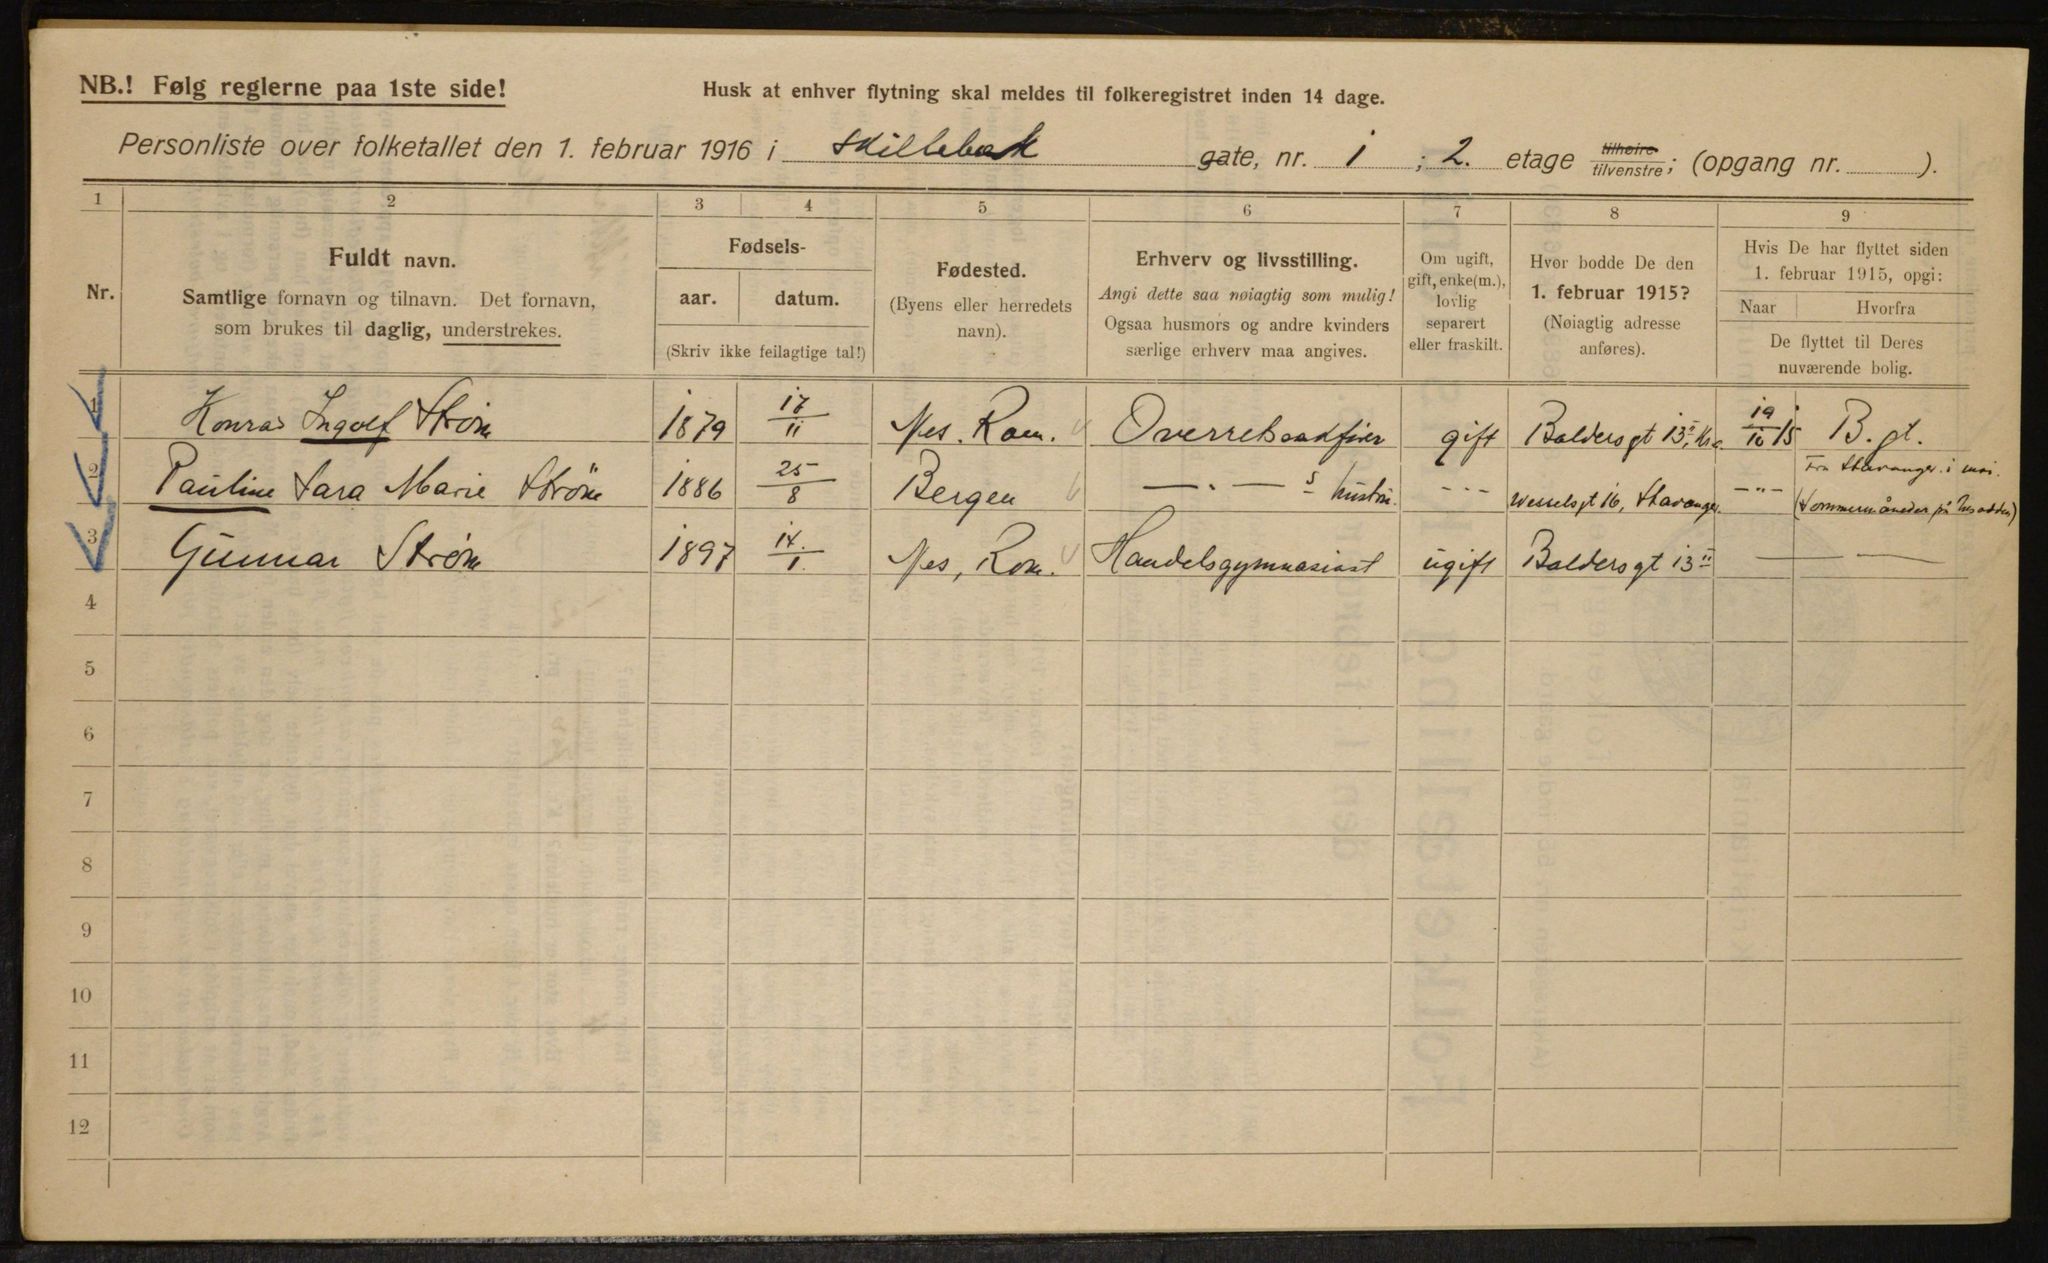 NB.! Følg reglerne paa 1ste side!
Husk at enhver flytning skal meldes til folkeregistret inden 14 dage.
Personliste over folketallet den 1. februar 1916 i Skillebæk gate, nr. 1 ; 2. etage tilhøire/tilvenstre; (opgang nr. ).
1 2 3 4 5 6 7 8 9
Nr.
Fuldt navn.
Samtlige fornavn og tilnavn. Det fornavn,
som brukes til daglig, understrekes.
Fødsels-
aar. datum.
(Skriv ikke feilagtige tal!)
Fødested.
(Byens eller herredets
navn).
Erhverv og livsstilling.
Angi dette saa nøiagtig som mulig!
Ogsaa husmors og andre kvinders
særlige erhverv maa angives.
Om ugift,
gift, enke(m.),
lovlig
separert
eller fraskilt.
Hvor bodde De den
1. februar 1915?
(Nøiagtig adresse
anføres).
Hvis De har flyttet siden
1. februar 1915, opgi:
Naar Hvorfra
De flyttet til Deres
nuværende bolig.
1 Konrad Ingolf Strøm 1879 17/11 Nes. Rom. Overretssakfører gift Baldersgt 13II, Kra. 19/10 15 B. gt.
2 Pauline Sara Marie Ström 1886 25/8 Bergen —"— s hustru. -"- Wesselsgt 16, Stavanger. —"— Fra Stavanger i mai.
(Sommermåneder på Nesodden)
3 Gunnar Strøm 1897 14./1. Nes, Rom. Handelsgymnasiast ugift Baldersgt 13II — —
4
5
6
7
8
9
10
11
12